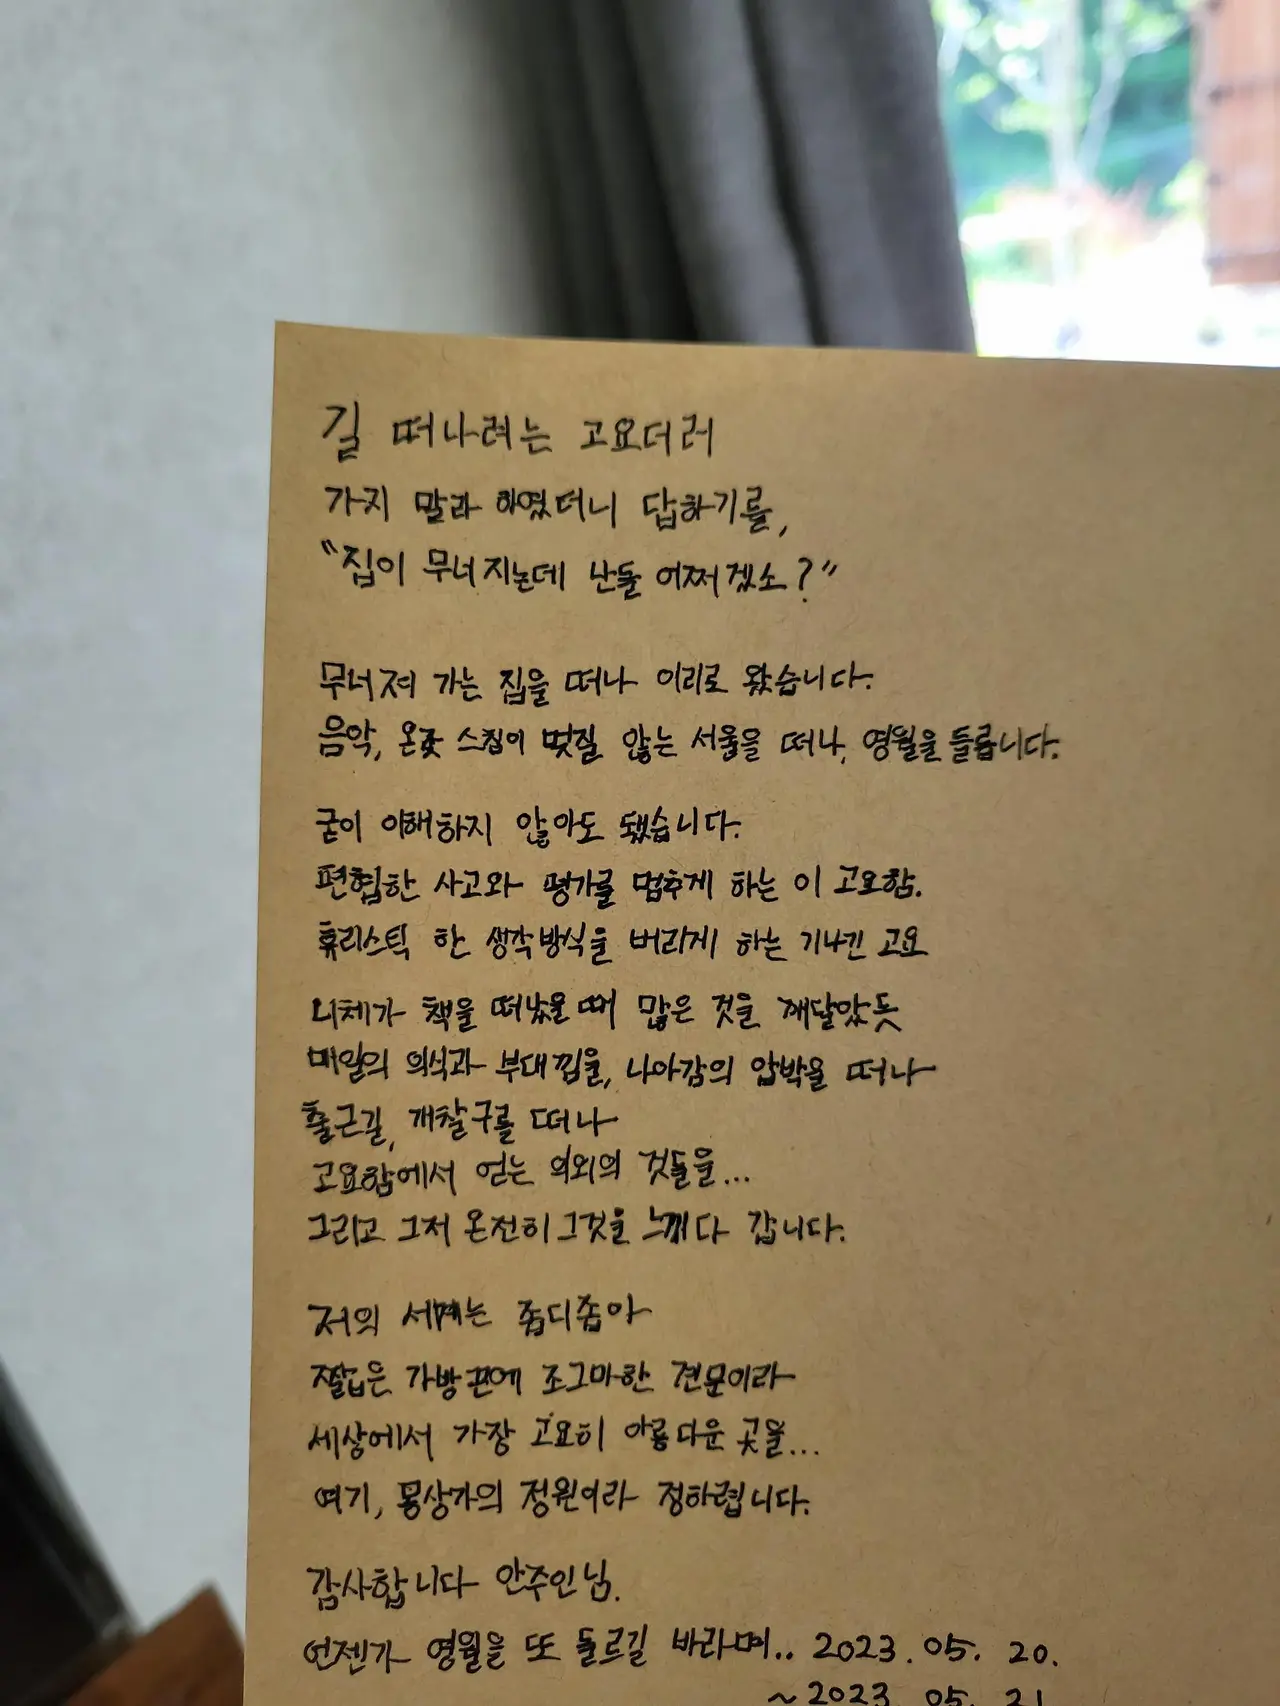 길 떠나려는 고요더러
가지 말라 하였더니 답하기를,
"집이 무너지는데 난들 어쩌겠소?"
무너져 가는 집을 떠나 이리로 왔습니다.
음악, 온갖 스침이 멎질 않는 서울을 떠나, 영월을 들릅니다.
굳이 이해하지 않아도 됐습니다.
편협한 사고와 평가를 멈추게 하는 이 고요함.
휴리스틱 한 생각방식을 버리게 하는 기나긴 고요
니체가 책을 떠났을 때 많은 것을 깨달았듯
매일의 의식과 부대낌을, 나아감의 압박을 떠나
출근길, 개찰구를 떠나
고요함에서 얻는 의외의 것들을...
그리고 그저 온전히 그것을 느끼다 갑니다.
저의 세계는 좁디좁아
짧은 가방끈에 조그마한 견문이라
세상에서 가장 고요히 아름다운 곳을...
여기, 몽상가의 정원이라 정하렵니다.
감사합니다 안주인님.
언젠가 영월을 또 들르길 바라며.. 2023. 05. 20.
~2023. 05. 21